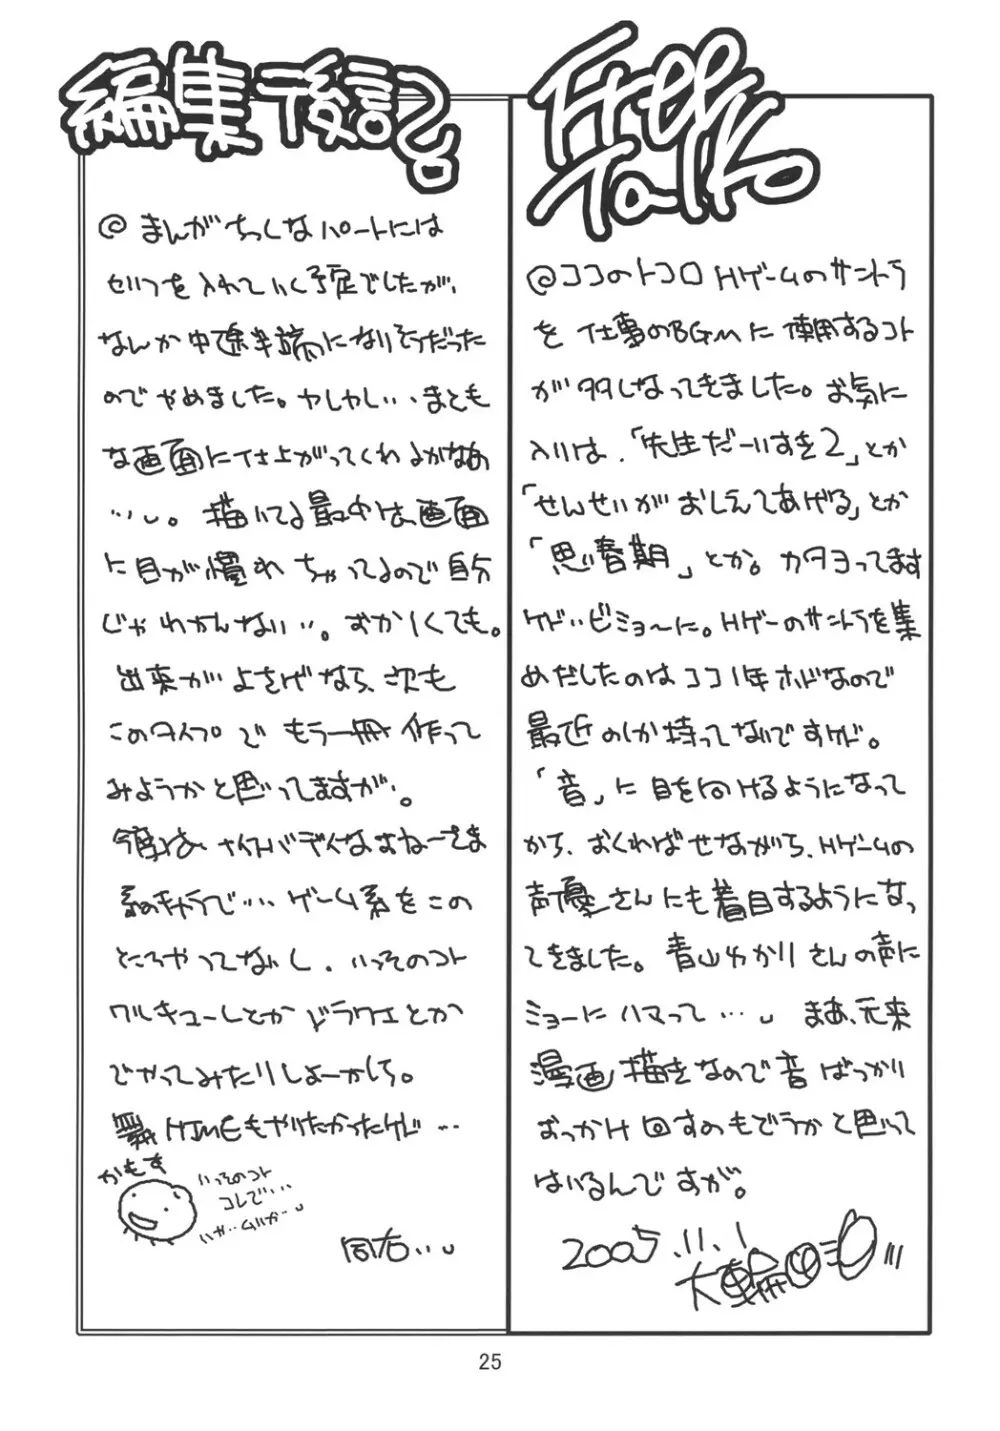 Free
Talk
@ココのトコロ Hゲームのサントラ
を 仕事のBGMに 使用するコト
が多くなってきました。お気に
入りは、「先生だーいすき2」とか
「せんせいが おしえてあげる」とか
「思春期」とか。カタヨってます
ケド‥ビミョ〜に。Hゲーのサントラを集
めだしたのは ココ1年ホドなので
最近のしか持ってないですケド。
「音」に 目を向けるようになって
から、おくればせながら、Hゲームの
声優さんにも着目するようになっ
てきました。青山ゆかりさんの声に
ミョーに ハマって…。 まぁ、元来
漫画描きなので 音 ばっかり
おっかけ 回すのもどうかと思って
はいるんですが。
2005.11.1
編集後記。
@ まんがちっくな パートには
セリフを 入れていく予定でしたが、
なんか中途半端になりそうだった
のでやめました。しかし‥まとも
な画面に仕上がってくれるかなぁ
…。描いてる最中は、画面
に目が慣れちゃってるので自分
じゃ わかんない‥。おかしくても。
出来が よさげなら、次も
このタイプで もう一冊 作って
みようかと思ってますが。
今度は、ナイスバディなおねーさま
系のキャラで… ゲーム系をこの
ところやってないし、いっそのコト
ワルキューレとか ドラクエとか
でやってみたりしよーかしら。
舞HiMEもやりたかったケド…
かもす
いっそのコト
コレで…
いや‥ムリか…
同右‥
25